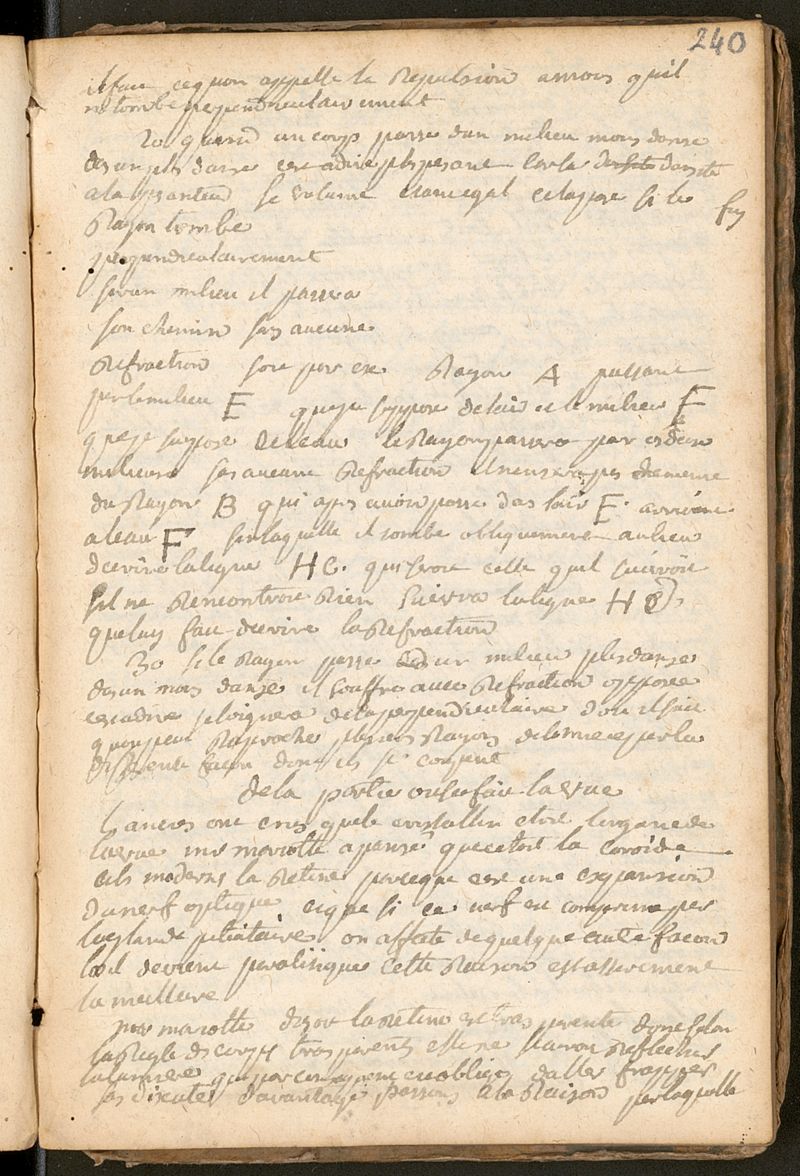 240
il fait ce quon appelle la Repulsion amoins quil
ne tombe perpendiculairement
2o quand un corps passe dun milieu moins danse
dans un plus danse cest adire plus pesant car la densite
a la pesanteur le volume etant egal si le
Rayon tombe
perpendiculairement
sur un milieu il passera
son chemin sans aucune
Refraction soit par ex Rayon A passant
par le milieu E que je suppose de lair et le milieu F
que je supose de leau le Rayon passera par ces deux
milieux sans aucune Refraction il nen sera pas de meme
du Rayon B qui apres avoir passé dans lair E arrivant
a leau F sur laquelle il tombe obliquement au lieu
decrire la ligne HC. qui seroit celle quil suivroit
sil ne Rencontroit Rien suivra la ligne HD
que luy fait decrire la Refraction
3o si le Rayon passe dun milieu plus danse
dans un moins danse il souffre une Refraction opposée
cest adire seloignera de la perpendiculaire dou il suit
quon peut Raprocher plusieurs Rayons de lumiere par la
differente facon dont ils se coupent
de la partie ou se fait la vue
les anciens ont crus que le cristallin etoit lorgane de
la vue mr mariotte a pensé que cetoit la coroide
les moderns la Retine parceque cest une expansion
du nerf optique et que si ce nerf est comprimé par
la glande pituitaire ou affecté de quelque autre facon
loeil devient paralitique cette Raison est assurement
la meilleure
mr mariotte disoit la Retine est transparente donc selon
la Regle des corps transparents elle ne scauroit Reflechir
la lumiere qui par consequent est obligee daller frapper
sans discuter davantage passons a la Raison par laquelle